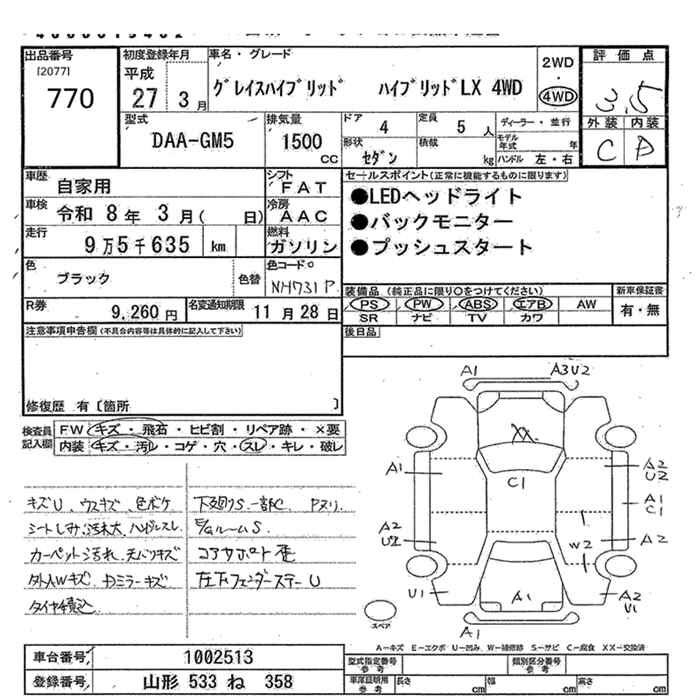 出品番号
12077)
770
初度登録年月
平成
27 3月
車名・グレード
グレイスハイブリッド ハイブリッドLX 4WD
2WD
・
4WD
評価点
3.5
外装 内装
C D
型式
DAA-GM5
排気量
1500
cc
ドア 4
定員 5人
形状 セダン
積載 kg
ディーラー・並行
モデル年式 年
ハンドル 左・右
車歴
自家用
シフト
FAT
車検
令和 8年 3月( 日)
冷房
AAC
走行
9万5千635 km
燃料
ガソリン
色
ブラック
色替
色コードNo
NH731P
R券
9,260円
名変通知期限
11月28日
セールスポイント(正常に機能するものに限ります)
●LEDヘッドライト
●バックモニター
●プッシュスタート
装備品(純正品に限り○をつけてください)
PS PW ABS エアB AW
SR ナビ TV カワ
新車保証書
有・無
後日品
注意事項申告欄(不具合内容等は具体的に記入して下さい)
修復歴 有〔箇所 〕
検査員
記入欄
FW キズ・飛石・ヒビ割・リペア跡・×要
内装 キズ・汚れ・コゲ・穴・スレ・キレ・破し
キズU、ウスキズ、色ボケ
シートしみ汚れ大、ハンドルスレ
カーペット汚れ、天バリキズ
外AWキズ、ドアミラーキズ
タイヤ積込
下廻りS 一部C Pヌリ
E/GルームS
コアサポート歪
左右フェンダーステーU
A1
A3U2
XX
C1
A1
A2
U2
A1
C1
A2
U2
A2
W2
U1
A1
A2
U1
スペア
A1
A-キズ E-エクボ U-凹み W-補修跡 S-サビ C-腐食 XX-交換済
車台番号
1002513
登録番号
山形 533 ね 358
型式指定番号
参考
類別区分番号
参考
車庫証明用
参考
長さ cm
幅 cm
高さ cm